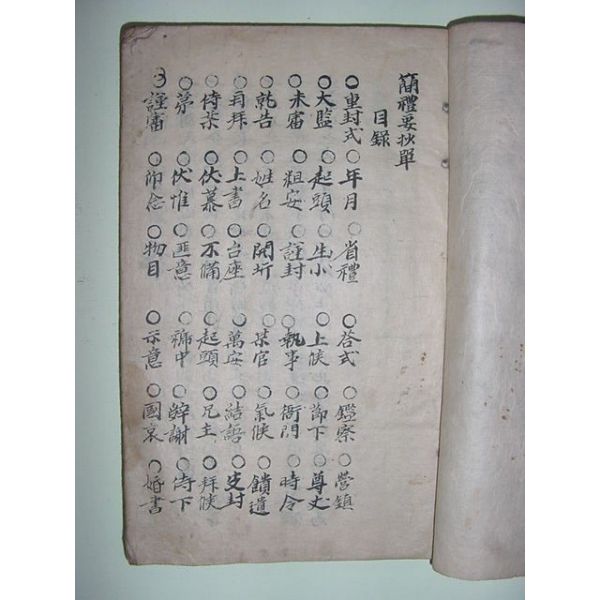 簡禮要抄單
目錄
○重封式○年月○省禮○答式○鑑察○營鎮
○大監○起頭○生小○上候○節下○尊丈
○未審○粗安○謹封○執事○衙門○時令
○乾告○姓名○開坼○某官○氣候○饋遺
○再拜○上書○台座○萬安○結語○支封
○侍案○伏慕○不備○起頭○兄主○拜候
○夢○伏惟○匪意○服中○辭謝○侍下
○謹審○仰念○物目○示意○國哀○婚書